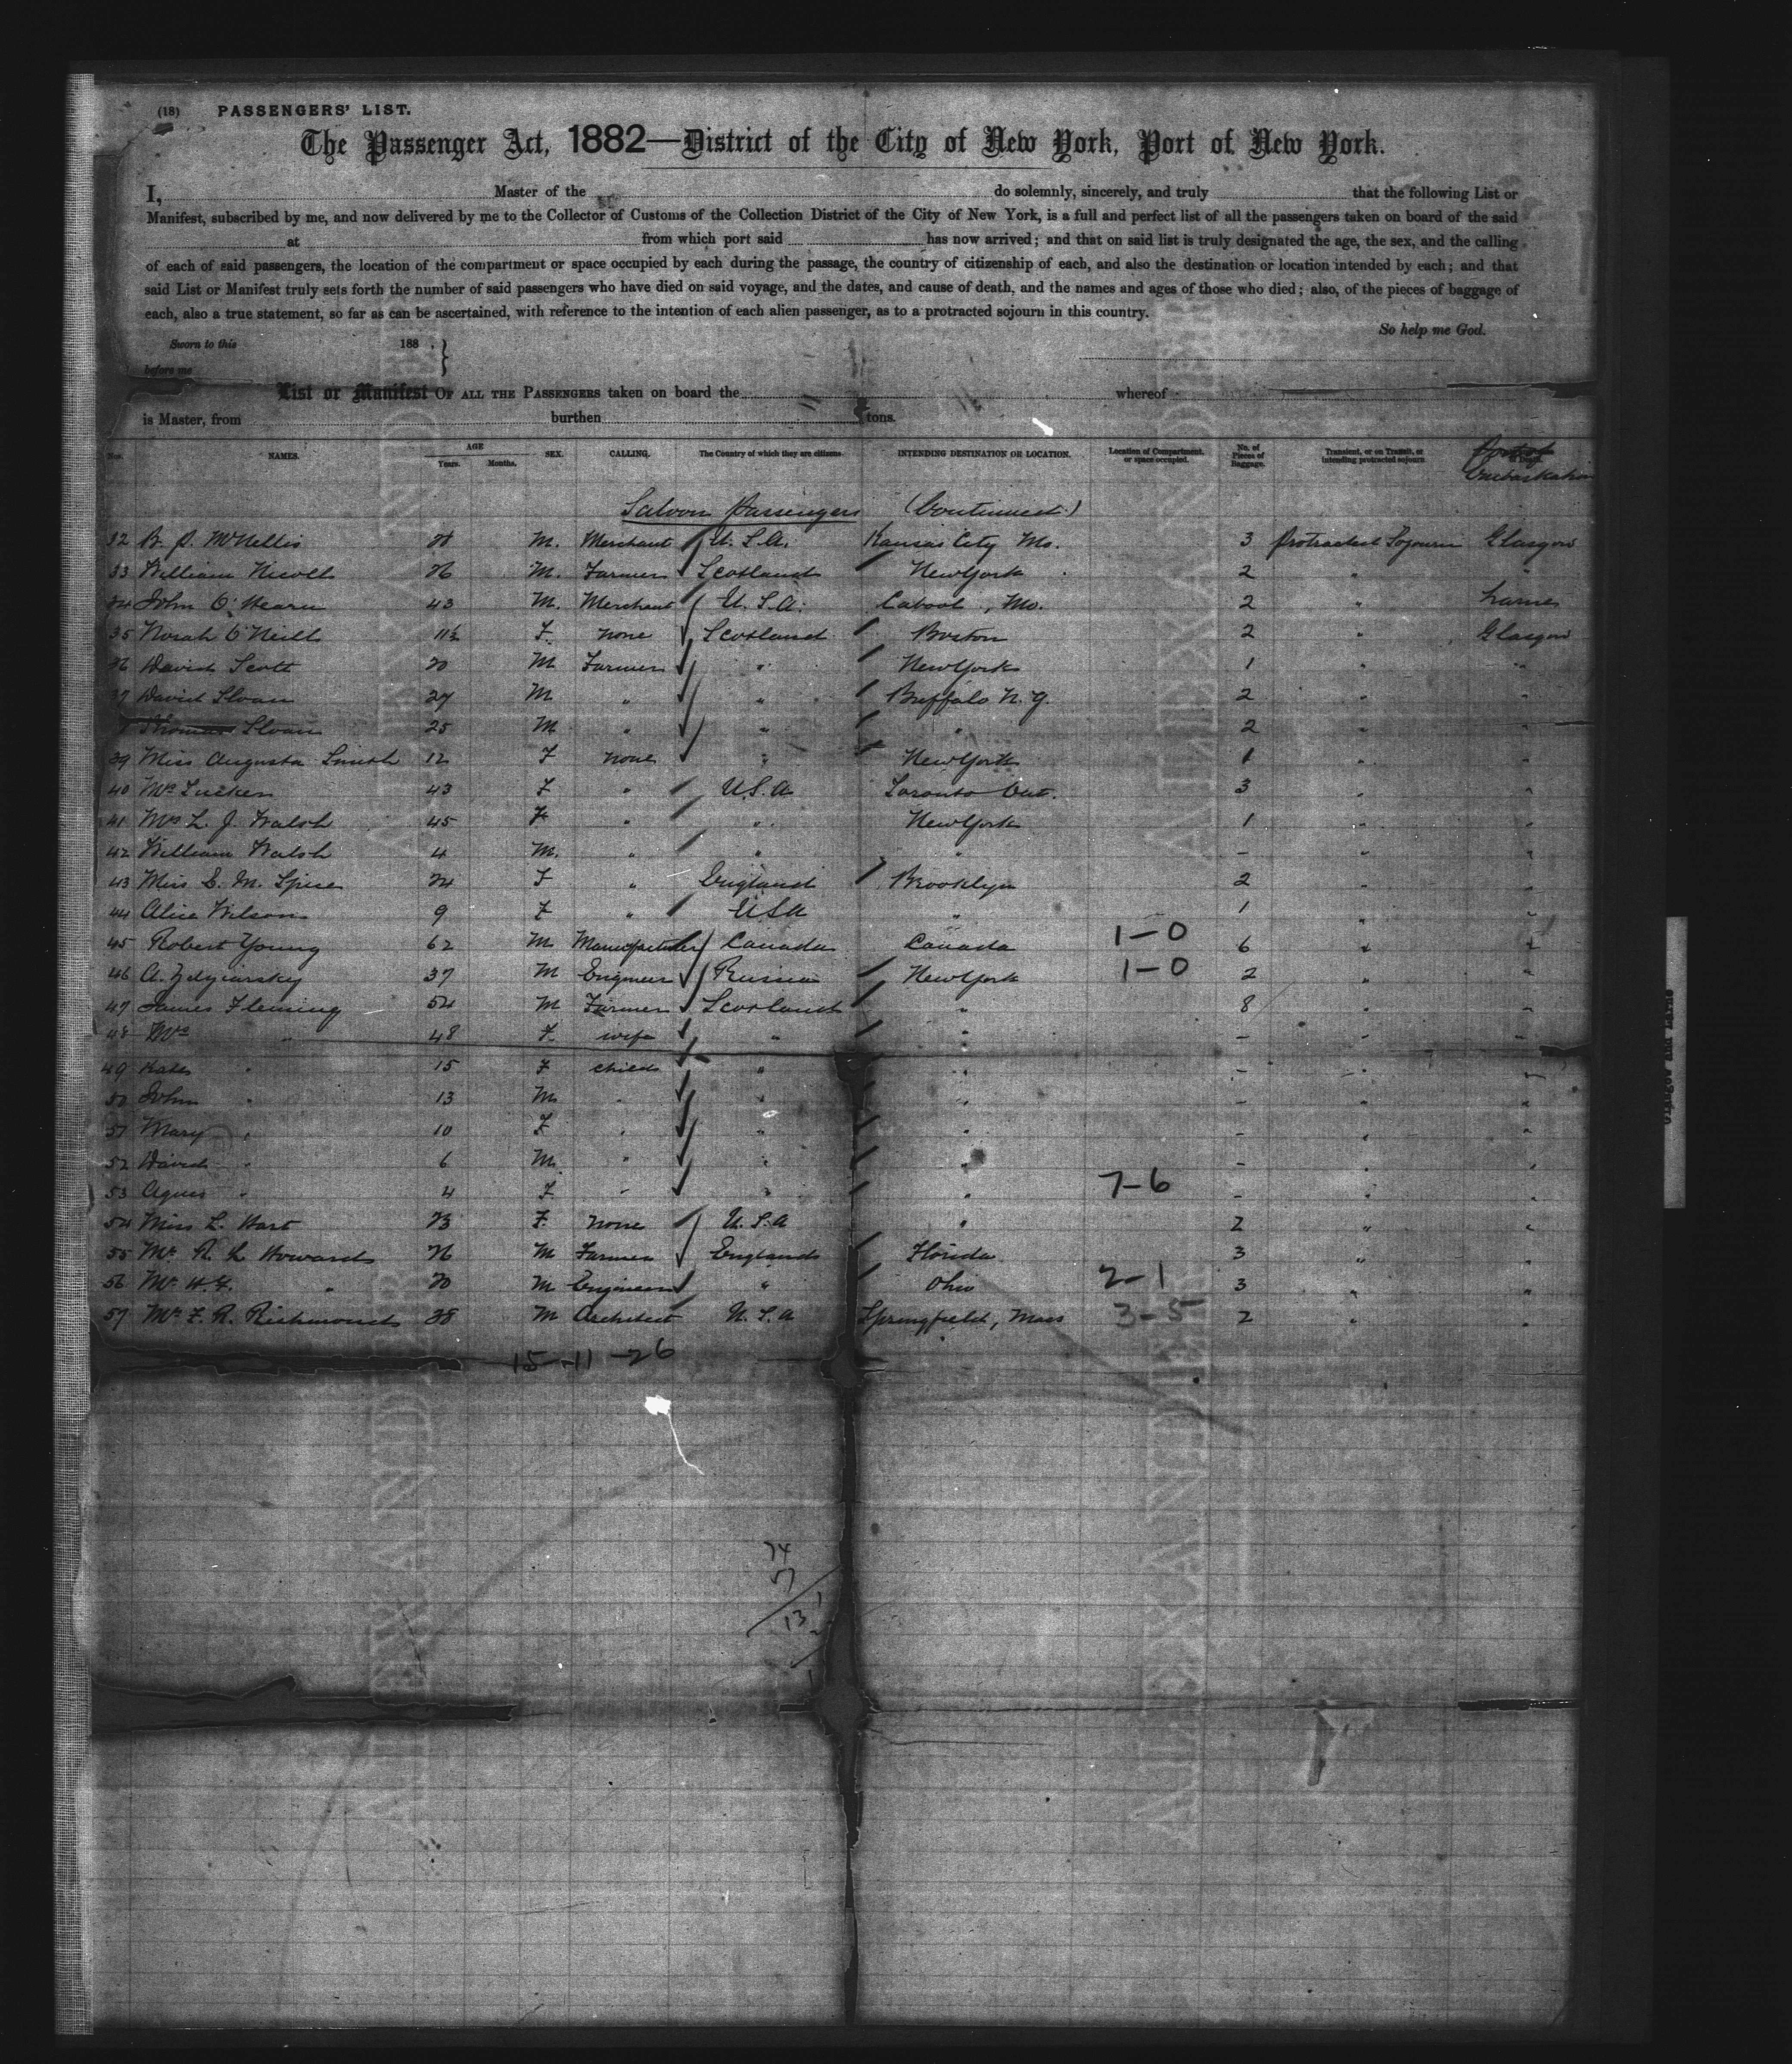 (18) PASSENGERS' LIST.
The Passenger Act, 1882—District of the City of New York, Port of New York.
I, Master of the do solemnly, sincerely, and truly that the following List or
Manifest, subscribed by me, and now delivered by me to the Collector of Customs of the Collection District of the City of New York, is a full and perfect list of all the passengers taken on board of the said
at from which port said has now arrived; and that on said list is truly designated the age, the sex, and the calling
of each of said passengers, the location of the compartment or space occupied by each during the passage, the country of citizenship of each, and also the destination or location intended by each; and that
said List or Manifest truly sets forth the number of said passengers who have died on said voyage, and the dates, and cause of death, and the names and ages of those who died; also, of the pieces of baggage of
each, also a true statement, so far as can be ascertained, with reference to the intention of each alien passenger, as to a protracted sojourn in this country.
So help me God.
Sworn to this 188 }
before me
List or Manifest OF ALL THE PASSENGERS taken on board the whereof
is Master, from burthen tons.
Nos. NAMES. AGE Years. Months. SEX. CALLING. The Country of which they are citizens. INTENDING DESTINATION OR LOCATION. Location of Compartment or space occupied. No. of Pieces of Baggage. Transient, or on Transit, or intending protracted sojourn. Port of Embarkation
Saloon Passengers (Continued.)
32 McNellis M. Merchant U.S.A. Kansas City Mo. 3 Protracted Sojourn Glasgow
33 William Nicoll 26 M. Farmer Scotland New York 2 " "
34 John O'Hearn 43 M. Merchant U.S.A. Cabool, Mo. 2 " Larne
35 Norah O'Neill 11½ F. none Scotland Boston 2 " Glasgow
36 David Scott 20 M Farmer " New York 1 " "
37 David Sloan 27 M " " Buffalo N.Y. 2 " "
Thomas Sloan 25 M " " " 2 " "
39 Miss Augusta Smith 12 F none " New York 1 " "
40 Mrs Tucker 43 F " U.S.A Toronto Ont. 3 " "
41 Mrs L. J. Walsh 45 F " " New York 1 " "
42 William Walsh 4 M. " " " - " "
43 Miss E. M. Spice 24 F " England Brooklyn 2 " "
44 Alice Wilson 9 F " USA " 1 " "
45 Robert Young 62 M Manufacturer Canada Canada 1-0 6 " "
46 A. 37 M Engineer Russia New York 1-0 2 " "
47 James Fleming 54 M Farmer Scotland " 8 " "
48 Mrs " 48 F wife " " - " "
49 Kate " 15 F child " " - " "
50 John " 13 M " " " - " "
51 Mary " 10 F " " " - " "
52 David " 6 M " " " - " "
53 Agnes " 4 F " " " 7-6 - " "
54 Miss L. Hart 23 F none U.S.A " 2 " "
55 Mr R. L Howard 26 M Farmer England Florida 3 " "
56 Mr H.F. " 20 M Engineer " Ohio 2-1 3 " "
57 Mr F. R. Richmond 28 M Architect U.S.A Springfield, Mass 3-5 2 " "
15-11-26
74
57
131
Glasgow and Larne
ALEXANDER